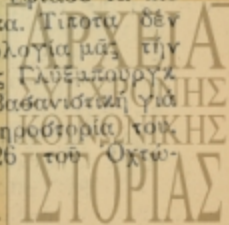 κα. Τίποτα δὲν
ολογία μᾶς τὴν
ς Γλύξμπουργκ
βασανιστικὴ γιὰ
ηροφορία του.
26 τοῦ Ὀχτώ-
ΑΡΧΕΙΑ
ΣΥΓΧΡΟΝΗΣ
ΚΟΙΝΩΝΙΚΗΣ
ΙΣΤΟΡΙΑΣ